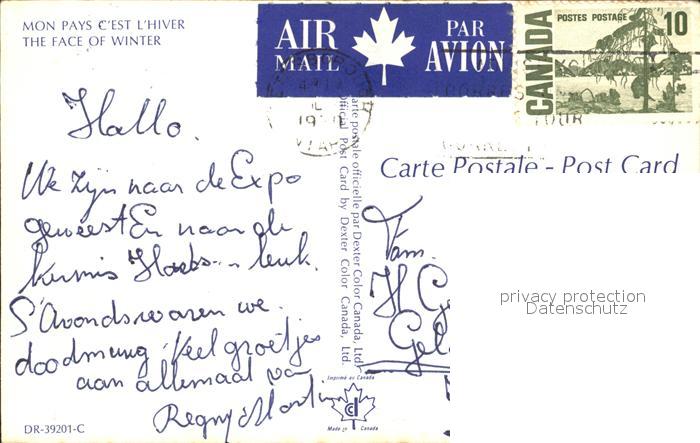 MON PAYS C'EST L'HIVER
THE FACE OF WINTER
AIR MAIL
PAR AVION
CANADA
POSTES POSTAGE
10
Hallo.
We zijn naar de Expo
geweest En naar de
kermis leuk.
S'Avonds waren we
doodmoe. Veel groetjes
aan allemaal van
Carte postale officielle par Dexter Color Canada, Ltd.
Official Post Card by Dexter Color Canada, Ltd.
Imprimé au Canada
Made in Canada
Carte Postale - Post Card
Fam.
H
privacy protection
Datenschutz
DR-39201-C